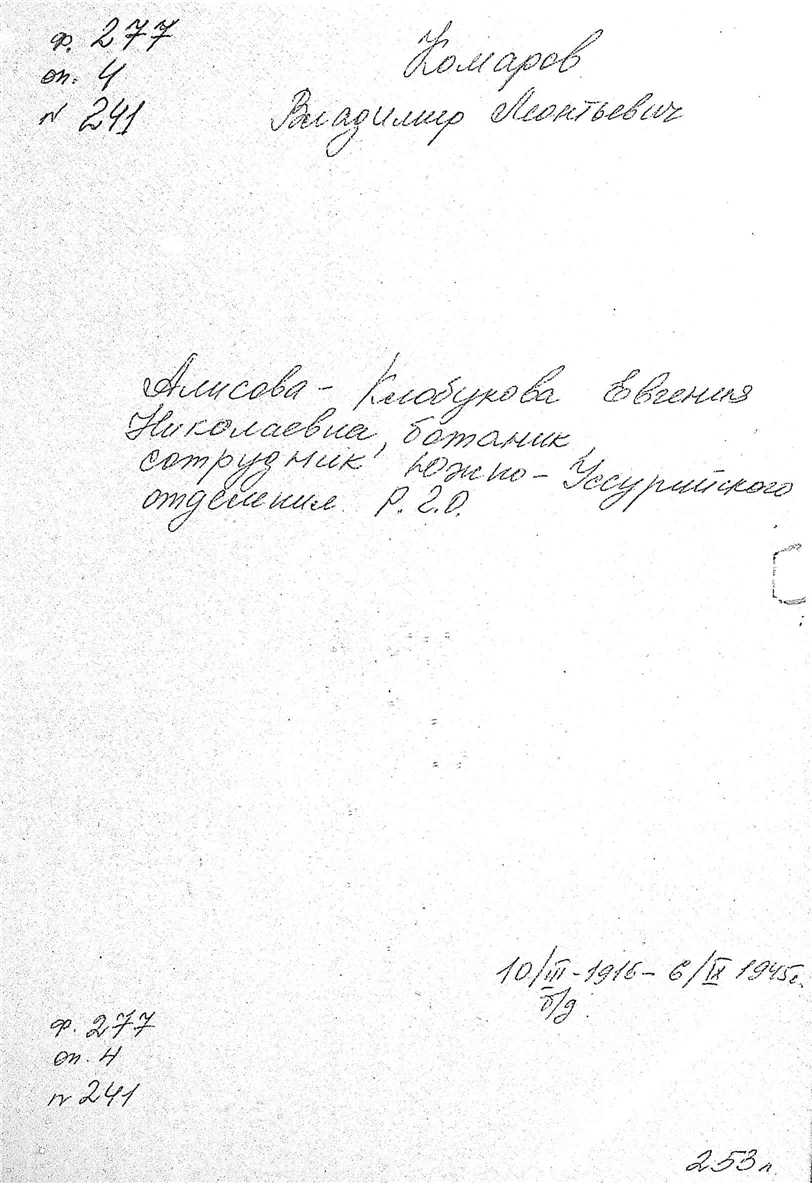 ф. 277
оп. 4
№ 241
Комаров
Владимир Леонтьевич
Алисова - Клобукова Евгения
Николаевна, ботаник,
сотрудник Южно-Уссурийского
отделения Р.Г.О.
10/III-1916 - 6/IX 1945г.
б/д
ф. 277
оп. 4
№ 241
253 л